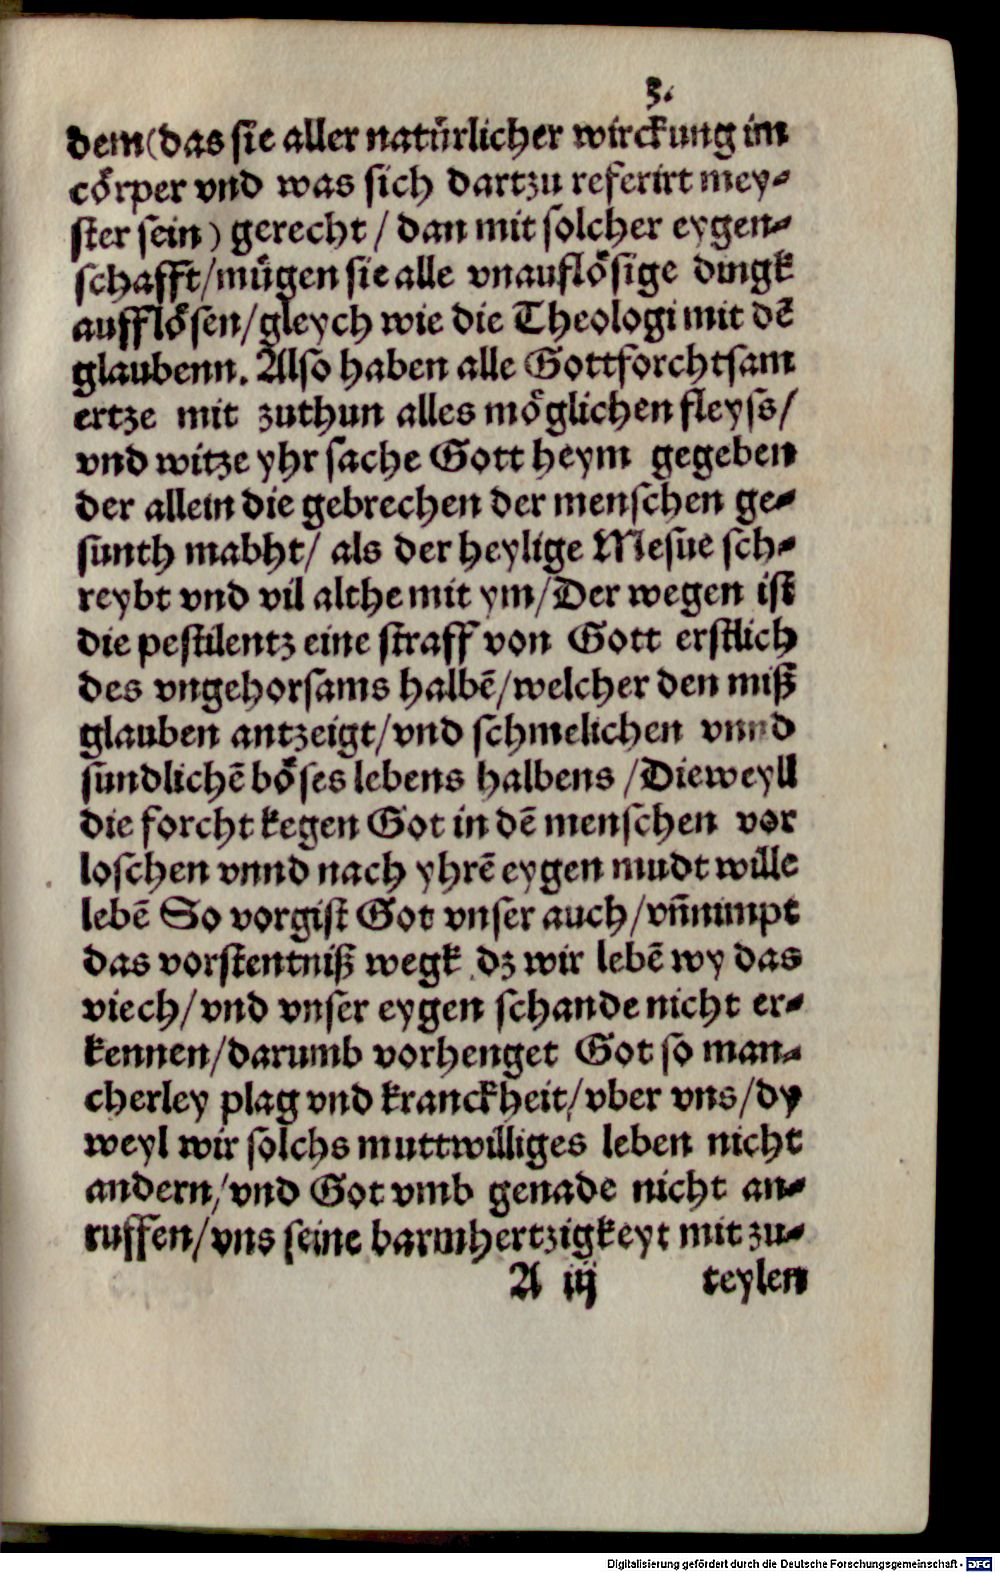 3.
dem(das sie aller natürlicher wirckung im
cörper vnd was sich dartzu referirt mey-
ster sein) gerecht / dan mit solcher eygen-
schafft/mügen sie alle vnauflösige dingk
aufflösen/gleych wie die Theologi mit dē
glaubenn. Also haben alle Gottforchtsam
ertze mit zuthun alles möglichen fleyss/
vnd witze yhr sache Gott heym gegeben
der allein die gebrechen der menschen ge-
sunth mabht/ als der heylige Mesue sch-
reybt vnd vil althe mit ym/Der wegen ist
die pestilentz eine straff von Gott erstlich
des vngehorsams halbē/welcher den miß
glauben antzeigt/vnd schmelichen vnnd
sundlichē böses lebens halbens /Dieweyll
die forcht kegen Got in dē menschen vor
loschen vnnd nach yhrē eygen mudt wille
lebē So vorgist Got vnser auch/vn̄ nimpt
das vorstentniß wegk dz wir lebē wy das
viech/vnd vnser eygen schande nicht er-
kennen/darumb vorhenget Got so man-
cherley plag vnd kranckheit/vber vns/dy
weyl wir solchs muttwilliges leben nicht
andern/vnd Got vmb genade nicht an-
ruffen/vns seine barmhertzigkeyt mit zu-
A iij teylen
Digitalisierung gefördert durch die Deutsche Forschungsgemeinschaft - DFG